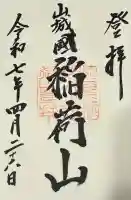 登拝
山城國
稲荷山
令和七年四月二十八日